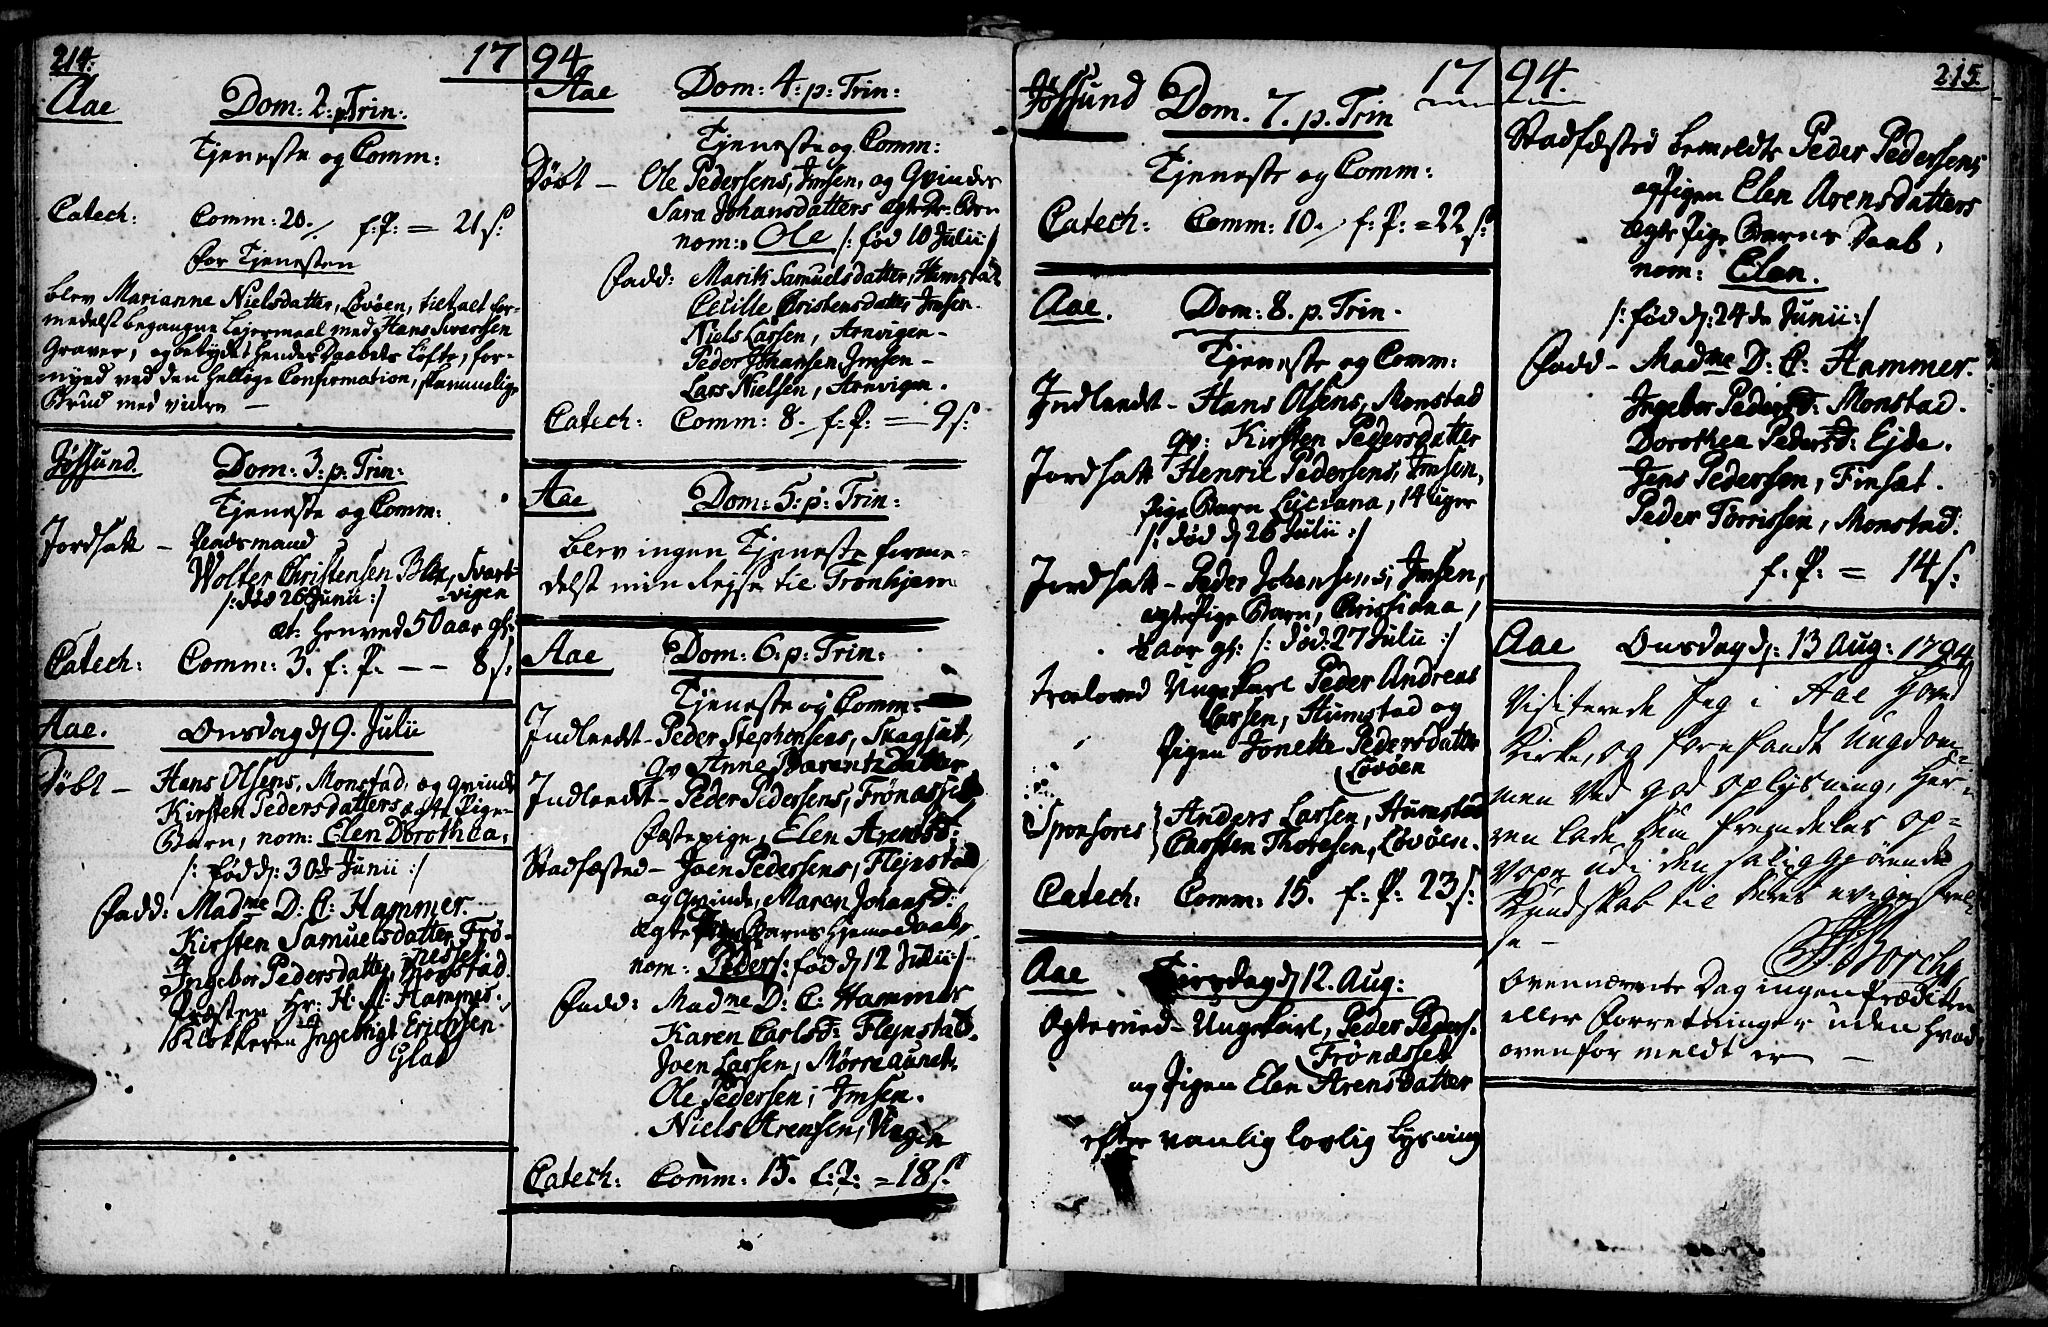 214.
17
Aae
Dom: 2: p: Trin:
Tjeneste og Comm:
Catech: Comm: 20. f: P: = 21 s:
for Tjenesten
blev Marianne Nielsdatter, Lovöen, tiltalt for-
medelst begangne Lejermaal med Hans Siverssen
Graver, og betydet hendes Daabes Löfte, for-
nyed ved den hellige Confirmation, skammelige
Brud med videre —
Jössund.
Dom: 3: p: Trin:
Tjeneste og Comm:
Jordsatt — Pladsmand
Wolter Christensen Blix, Svart-
vigen
/: död 26 Junii :/
æt: henved 50 aar gl:
Catech: Comm: 3. f: P. — — 8 s:
Aae.
Onsdag d: 9. Julii
Döbt — Hans Olsens, Monstad, og Qvindes
Kirsten Pedersdatters ægte Pige-
Barn, nom: Elen Dorothea,
/: föd d: 30de Junii :/
Fadd: Madme D: C: Hammer.
Kirsten Samuelsdatter, Frö-
nesset
Ingebor Pedersdatter, Monstad.
Præsten Hr: H: A: Hammer.
Klokkeren Ingebrigt Erichsen
Glad
94
Aae
Dom: 4: p: Trin:
Tjeneste og Comm:
Döbt — Ole Pedersens, Imsen, og Qvindes
Sara Johansdatters ægte Dr: Barn
nom: Ole /: föd 10 Julii /
Fadd: Marith Samuelsdatter, Humstad
Cecille Christensdatter Imsen.
Niels Larsen, Arnvigen —
Peder Johansen Imsen —
Lars Nielsen, Arnvigen.
Catech: Comm: 8. f: P: = 9 s:
Aae
Dom: 5: p: Trin:
blev ingen Tjeneste forme-
delst min Rejse til Tronhjem
Aae
Dom: 6: p: Trin:
Tjeneste og Comm:
Indleedt — Peder Stephensens, Skagsæt,
Qv Anne Barentsdatter
Indleedt — Peder Pedersens, Frönesset
fæstepige, Elen Arensd:
Stadfæsted — Joen Pedersens, Flejnstad,
og Qvinde, Maren Johansd:
ægte Barns hjemedaab,
nom: Peder /: föd d: 12 Julii /
Fadd: Madme D: C: Hammer
Karen Carlsd: Flejnstad.
Joen Larsen, Mörreaunet.
Ole Pedersen, Imsen.
Niels Arensen, Vingen
Catech: Comm: 15. f: P: = 18 s:
17
Jössund
Dom. 7. p. Trin
Tjeneste og Comm:
Catech: Comm: 10. f: P: = 22 s:
Aae.
Dom: 8. p. Trin.
Tjeneste og Comm:
Indleedt — Hans Olsens, Monstad
qv: Kirsten Pedersdatter
Jordsatt Henric Pedersens, Imsen,
Pige Barn Luciana, 14 Uger
/: död d: 26 Julii :/
Jordsatt — Peder Johansens, Imsen,
ægte Pige Barn, Christiana,
aar gl: /: död: 27 Julii :/
troeloved Ungekarl Peder Andreas
Larsen, Humstad og
Pigen Jonette Pedersdatter
Lovöen
Sponsores } Anders Larsen, Humstad
Carsten Thoresen, Lovöen.
Catech. Comm: 15. f: P: 23 s:
Aae
Tirsdag d: 12. Aug:
Ægtevied — Ungekarl, Peder Peders:
Frönesset
og Pigen Elen Arensdatter
efter vanlig lovlig Lysning
94.
215
Stadfæsted bemeldte Peder Pedersens,
og Pigen Elen Arensdatters
ægte Pige Barns Daab,
nom: Elen.
/: föd d: 24de Junii :/
Fadd — Madme D: C: Hammer.
Ingebor Pedersd: Monstad.
Dorothea Pedersd: Ejde.
Jens Pedersen, Finsæt.
Peder Torrissen, Monstad.
f. P: = 14 s:
Aae
Onsdag d: 13 Aug: 1794
Visiterede Jeg i Aae Hoved
Kirke, og forefandt Ungdom-
men ved god oplysning, Her-
ren lade dem fremdeles op-
voxe udi den saliggjörende
Kundskab til deres evige Frel-
se —
Borch
Ovennævnte Dag ingen Præditten
eller Forretninger uden hvad
ovenfor meldt er —